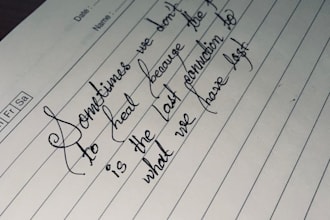 Date
Name :
Fri Sa
Sometimes we don't
to heal because the
is the last connection to
what we have lost